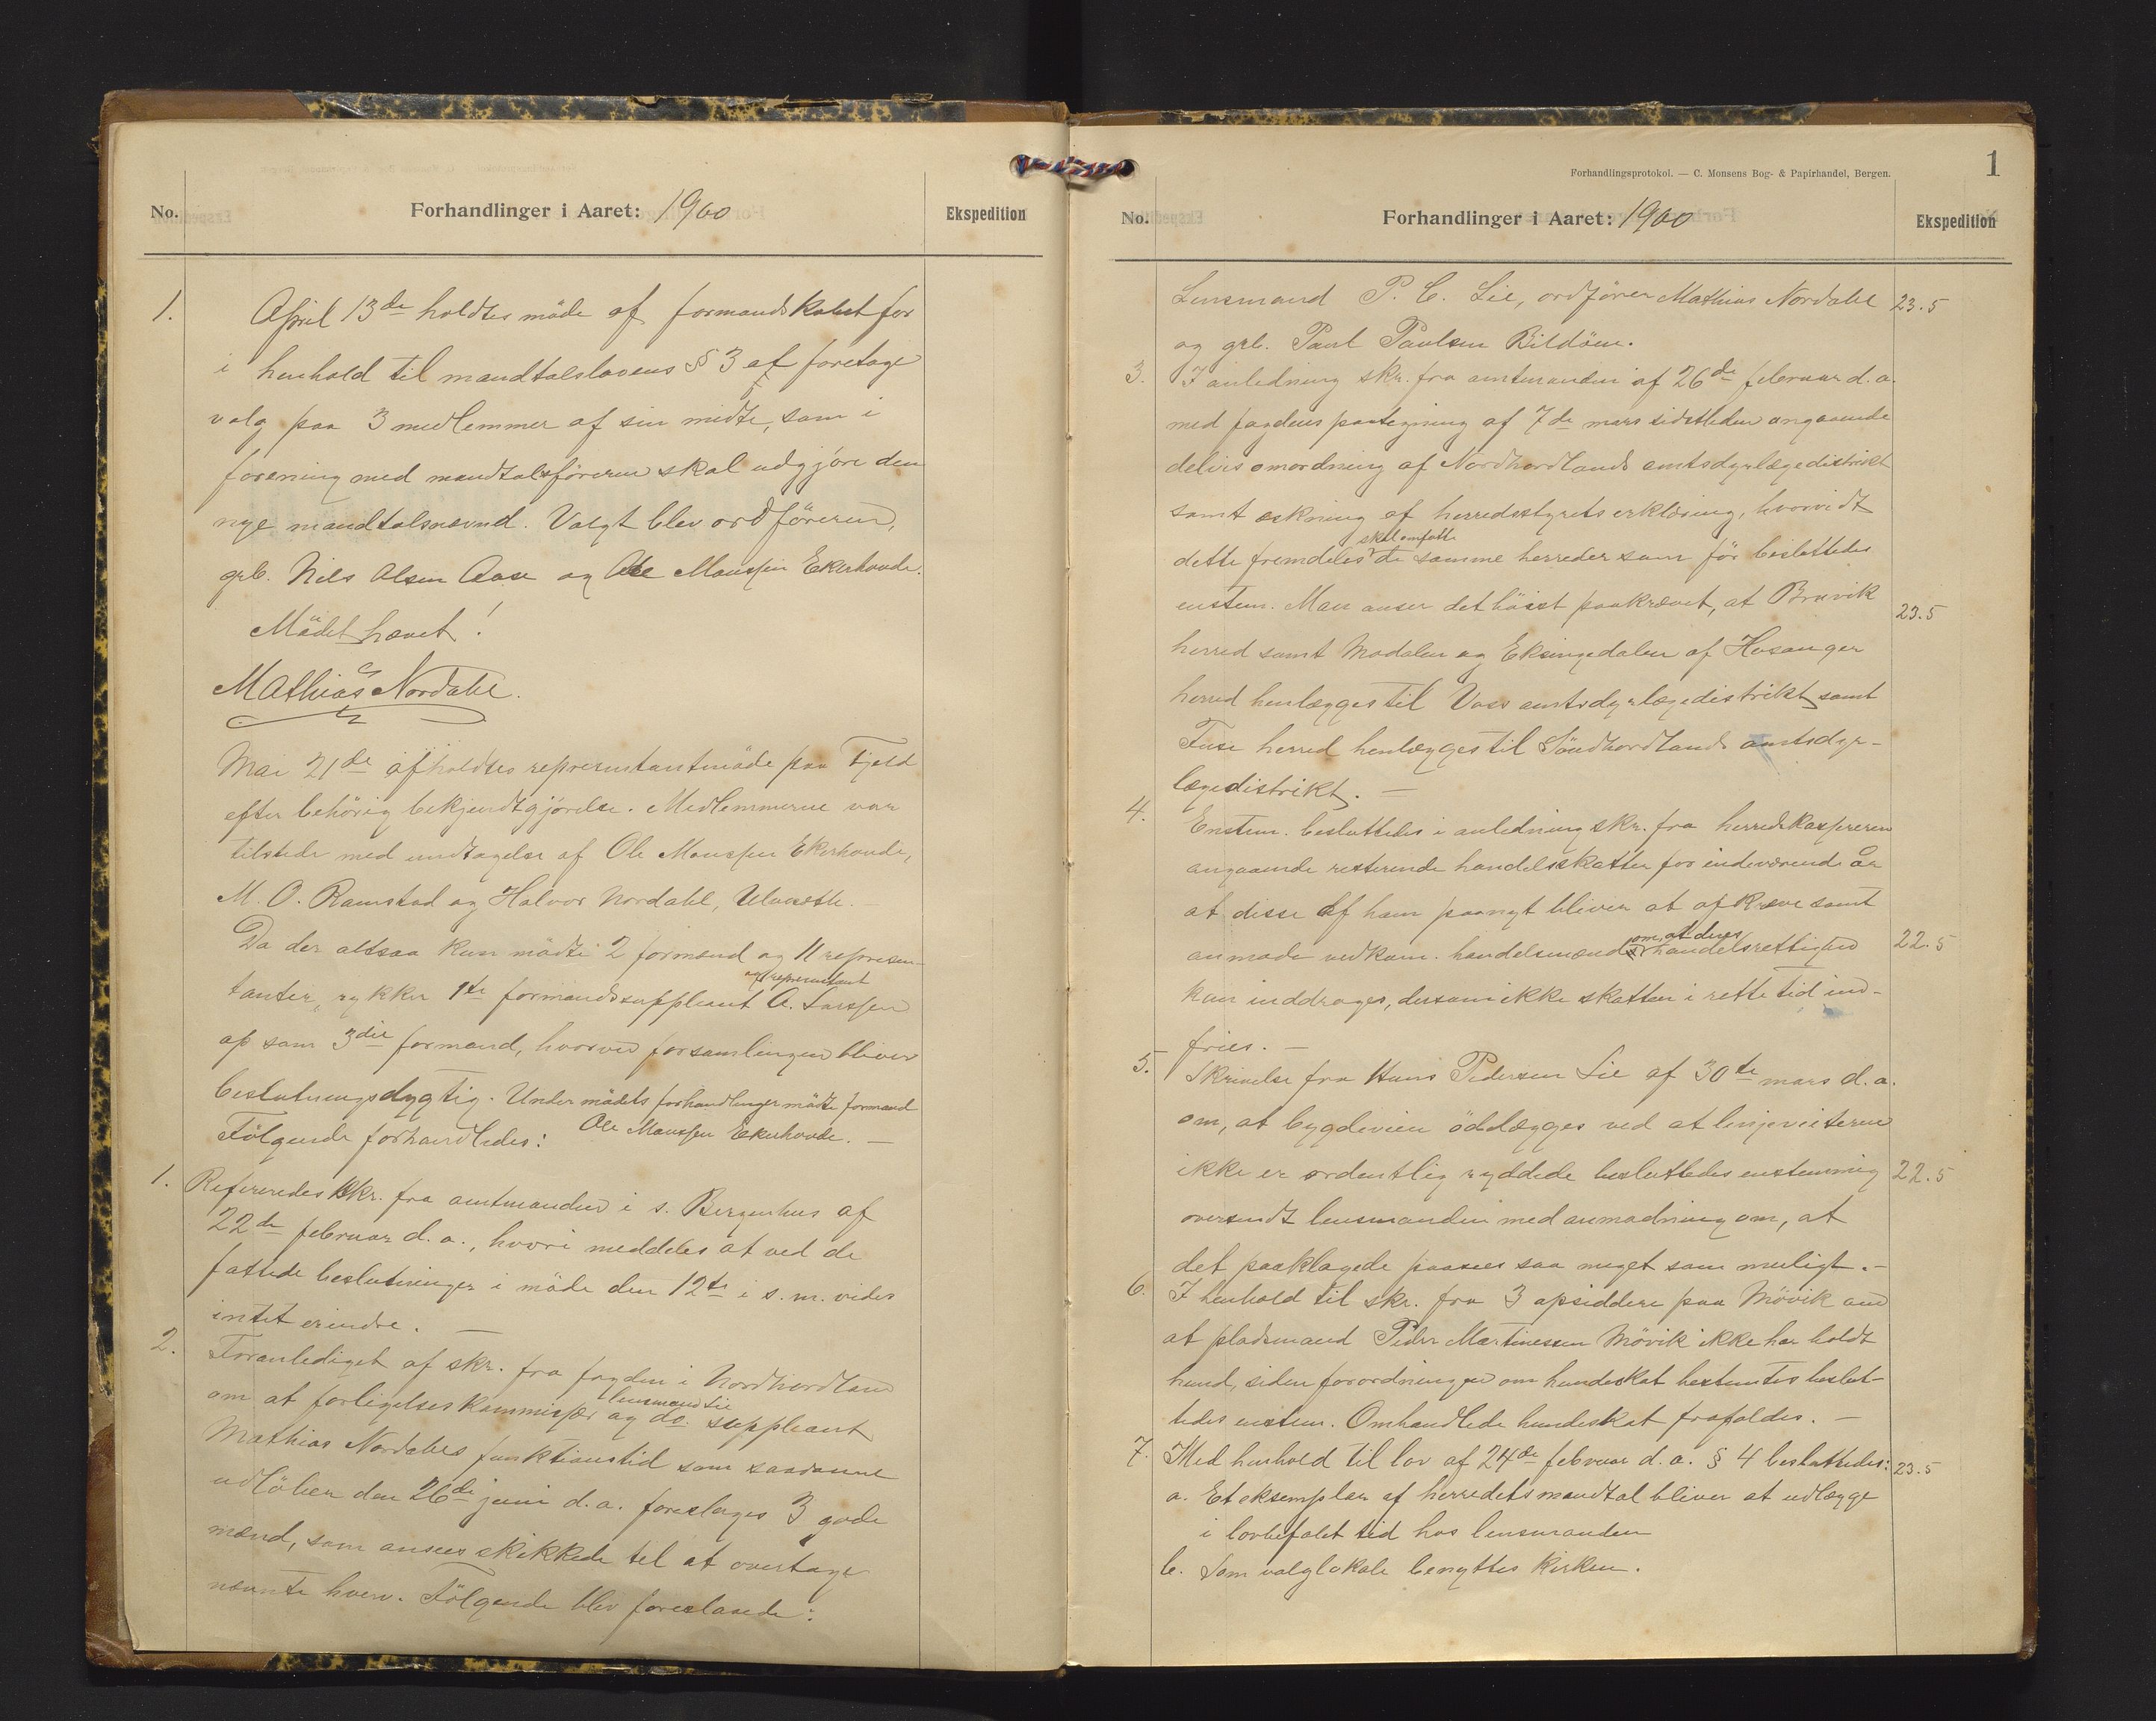 No. Forhandlinger i Aaret: 1900 Ekspedition
1. April 13de holdtes møde af formandskabet for
i henhold til mandtalslovens § 3 at foretage
valg paa 3 medlemmer af sin midte, som i
forening med mandtalsføreren skal udgjøre den
nye mandtalsnævnd. Valgt blev ordføreren,
grb. Nils Olsen Aase og Ole Monssen Ekerhovde.
Mødet hævet!
Mathias Nordahl.
Mai 21de afholdtes representantmøde paa Fjeld
efter behørig bekjendtgjørelse. Medlemmerne var
tilstede med undtagelse af Ole Monssen Ekerhovde,
M. O. Ramstad og Halvor Nordahl, Ulveseth. —
Da der altsaa kun mødte 2 formænd og 11 represen-
og representant
tanter, rykker 1ste formandssuppleant A. Larssen
op som 3die formand, hvorved forsamlingen bliver
beslutningsdygtig. Under mødets forhandlinger mødte formand
Følgende forhandledes: Ole Monssen Ekerhovde. —
1. Refereredes skr. fra amtmanden i s. Bergenhus af
22de februar d. a., hvori meddeles at ved de
fattede beslutninger i møde den 12te i s. m. vides
intet erindre. —
2. Foranlediget af skr. fra fogden i Nordhordland
lensmand Lie
om at forligelseskommissær og do. suppleant
Mathias Nordahls funktionstid som saadanne
udløber den 26de juni d. a. foreslages 3 gode
mænd, som ansees skikkede til at overtage
nævnte hverv. Følgende blev foreslaaede:
Forhandlingsprotokol. — C. Monsens Bog- & Papirhandel, Bergen. 1
No. Forhandlinger i Aaret: 1900 Ekspedition
Lensmand P. C. Lie, ordfører Mathias Nordahl 23.5
og grb. Paul Paulsen Bildøen.
3. I anledning skr. fra amtmanden af 26de februar d. a.
med fogdens paategning af 7de mars sidstleden angaaende
delvis omordning af Nordhordlands amtsdyrlægedistrikt
samt æskning af herredsstyrets erklæring, hvorvidt
skal omfatte
dette fremdeles de samme herreder som før besluttedes
enstem. Man anser det høist paakrævet, at Bruvik 23.5
herred samt Modalen og Eksingedalen af Hosanger
herred henlægges til Voss amtsdyrlægedistrikt samt
Fuse herred henlægges til Søndhordlands amtsdyr-
lægedistrikt. —
4. Enstem. besluttedes i anledning skr. fra herredskassereren
angaaende resterende handelsskatter for indeværende år
at disse af ham paanyt bliver at afkræve samt
om, at deres
anmode vedkom. handelsmænd handelsrettighed 22.5
kan inddrages, dersom ikke skatten i rette tid ind-
fries. —
5. Skrivelse fra Hans Pedersen Lie af 30te mars d. a.
om, at bygdeveien ødelægges ved at linjeveiterne
ikke er ordentlig ryddede besluttedes enstemmig 22.5
oversendt lensmanden med anmodning om, at
det paaklagede paasees saa meget som muligt. —
6. I henhold til skr. fra 3 opsiddere paa Møvik om
at pladsmand Peder Martinessen Møvik ikke har holdt
hund, siden forordningen om hundeskat bestemtes beslut-
tedes enstem. Omhandlede hundeskat frafaldes. —
7. Med henhold til lov af 24de februar d. a. § 4 besluttedes: 23.5
a. Et eksemplar af herredets mandtal bliver at udlægge
i lovbefalet tid hos lensmanden
b. Som valglokale benyttes kirken.